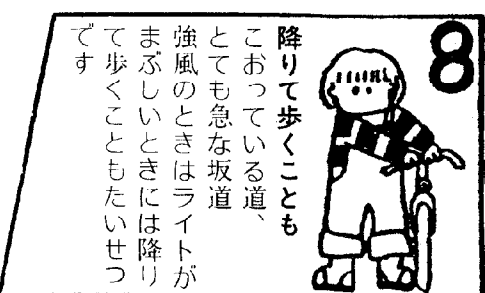 8
降りて歩くことも
こおっている道、
とても急な坂道
強風のときはライトが
まぶしいときには降り
て歩くこともたいせつ
です